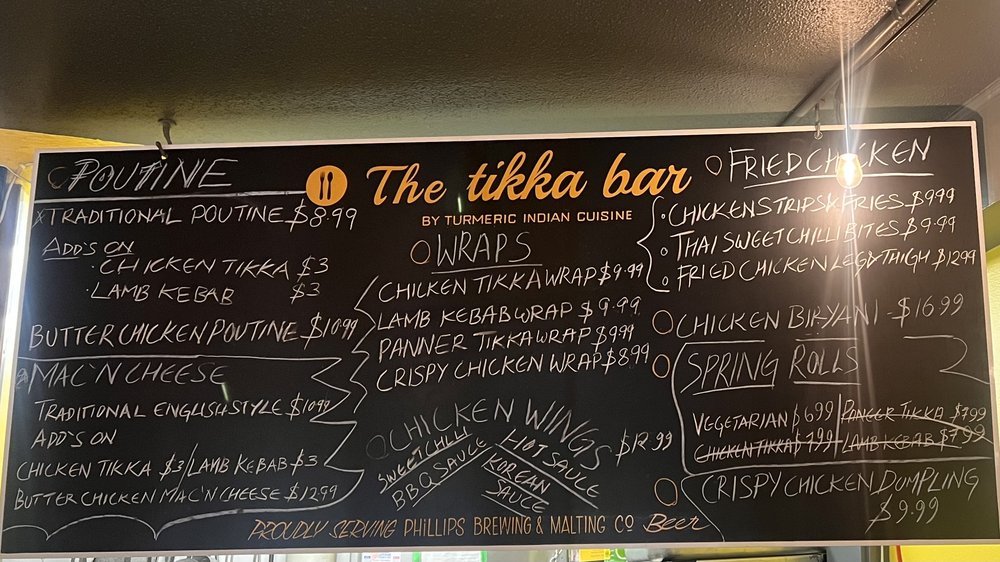 POUTINE
TRADITIONAL POUTINE $8.99
ADD'S ON
· CHICKEN TIKKA $3
· LAMB KEBAB $3
BUTTER CHICKEN POUTINE $10.99
MAC'N CHEESE
TRADITIONAL ENGLISH STYLE $10.99
ADD'S ON
CHICKEN TIKKA $3/LAMB KEBAB $3
BUTTER CHICKEN MAC'N CHEESE $12.99
The tikka bar
BY TURMERIC INDIAN CUISINE
WRAPS
CHICKEN TIKKA WRAP $9.99
LAMB KEBAB WRAP $9.99
PANNER TIKKA WRAP $9.99
CRISPY CHICKEN WRAP $8.99
CHICKEN WINGS $12.99
SWEET CHILLI
BBQ SAUCE
HOT SAUCE
KOREAN
SAUCE
FRIED CHICKEN
· CHICKEN STRIPS & FRIES $9.99
THAI SWEET CHILLI BITES $9.99
FRIED CHICKEN LEG/THIGH $12.99
CHICKEN BIRYANI - $16.99
SPRING ROLLS
VEGETARIAN $6.99 | PANEER TIKKA $7.99
CHICKEN TIKKA $7.99 | LAMB KEBAB $7.99
CRISPY CHICKEN DUMPLING
$9.99
PROUDLY SERVING PHILLIPS BREWING & MALTING CO Beer